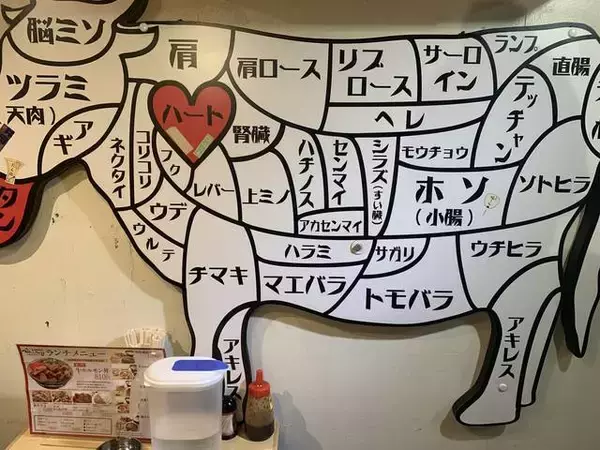 脳ミソ
ツラミ
(天肉)
アギ
タン
ネクタイ
コリコリ
フク
ウルテ
ウデ
肩
ハート
肩ロース
腎臓
レバー
上ミノ
ハチノス
センマイ
アカセンマイ
シマキ
リブ
ロース
サーロ
イン
ヘレ
シラズ(すい臓)
モウチョウ
ランプ
テッチャン
直腸
ホソ
(小腸)
ソトヒラ
ハラミ
サガリ
ウチヒラ
チマキ
マエバラ
トモバラ
アキレス
アキレス
ランチメニュー